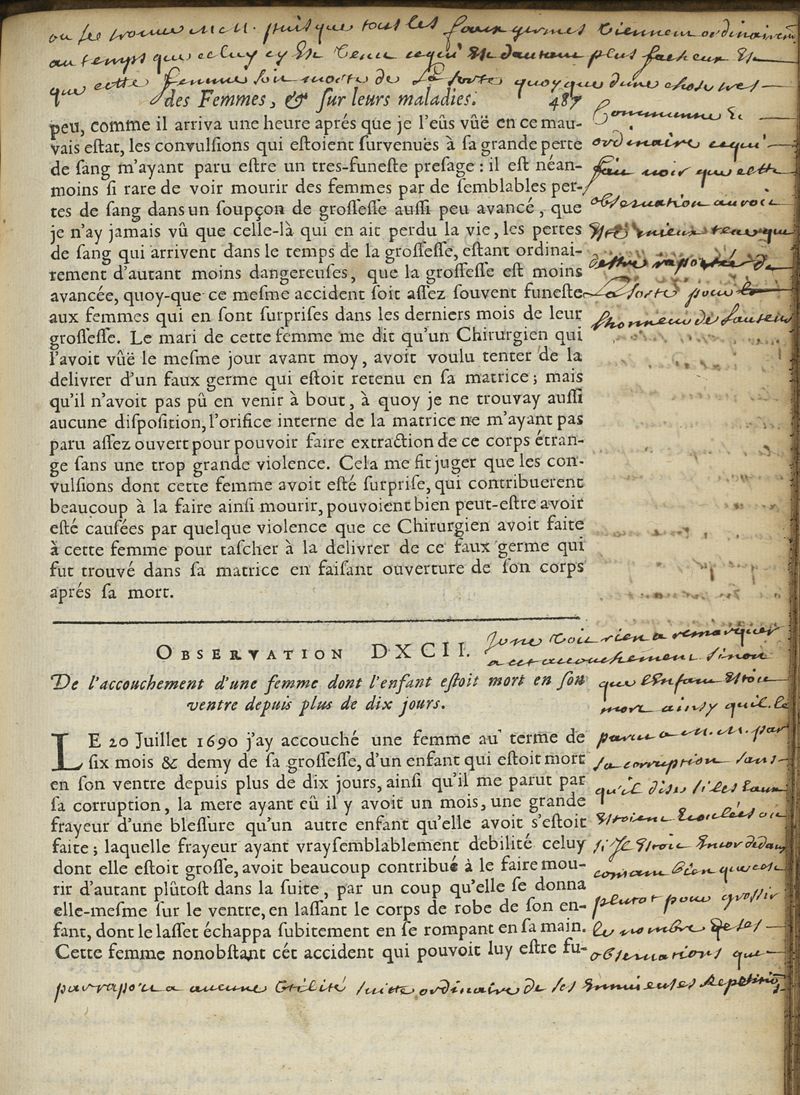 puis que tous les faux germes viennent ordinairem
au temps que celuy cy est venu ce qui est dautant plus facheux est
que cette femme soit morte de la sorte quoy que dune chose tres
des Femmes, & ſur leurs maladies. 487
peu, comme il arriva une heure aprés que je l'eûs vûë en ce mau-
vais eſtat, les convulſions qui eſtoient ſurvenuës à ſa grande perte
de ſang m'ayant paru eſtre un tres-funeſte preſage : il eſt néan-
moins ſi rare de voir mourir des femmes par de ſemblables per-
tes de ſang dans un ſoupçon de groſſeſſe auſſi peu avancé, que
je n'ay jamais vû que celle-là qui en ait perdu la vie, les pertes
de ſang qui arrivent dans le temps de la groſſeſſe, eſtant ordinai-
rement d'autant moins dangereuſes, que la groſſeſſe eſt moins
avancée, quoy-que ce meſme accident ſoit aſſez ſouvent funeſte
aux femmes qui en ſont ſurpriſes dans les derniers mois de leur
groſſeſſe. Le mari de cette femme me dit qu'un Chirurgien qui
l'avoit vûë le meſme jour avant moy, avoit voulu tenter de la
delivrer d'un faux germe qui eſtoit retenu en ſa matrice ; mais
qu'il n'avoit pas pû en venir à bout, à quoy je ne trouvay auſſi
aucune diſpoſition, l'orifice interne de la matrice ne m'ayant pas
paru aſſez ouvert pour pouvoir faire extraction de ce corps étran-
ge ſans une trop grande violence. Cela me fit juger que les con-
vulſions dont cette femme avoit eſté ſurpriſe, qui contribuerent
beaucoup à la faire ainſi mourir, pouvoient bien peut-eſtre avoir
eſté cauſées par quelque violence que ce Chirurgien avoit faite
à cette femme pour taſcher à la delivrer de ce faux germe qui
fut trouvé dans ſa matrice en faiſant ouverture de ſon corps
aprés ſa mort.
commune &
ordinaire ce qui
fait voir que cette
obseruation auroit
esté mieux
la sorte pour
lhonneur de lauteur
OBSERVATION DXCII.
De l'accouchement d'une femme dont l'enfant eſtoit mort en ſon
ventre depuis plus de dix jours.
LE 20 Juillet 1690 j'ay accouché une femme au terme de
ſix mois & demy de ſa groſſeſſe, d'un enfant qui eſtoit mort
en ſon ventre depuis plus de dix jours, ainſi qu'il me parut par
ſa corruption, la mere ayant eû il y avoit un mois, une grande
frayeur d'une bleſſure qu'un autre enfant qu'elle avoit s'eſtoit
faite ; laquelle frayeur ayant vrayſemblablement debilité celuy
dont elle eſtoit groſſe, avoit beaucoup contribué à le faire mou-
rir d'autant plûtoſt dans la ſuite, par un coup qu'elle ſe donna
elle-meſme ſur le ventre, en laſſant le corps de robe de ſon en-
fant, dont le laſſet échappa ſubitement en ſe rompant en ſa main.
Cette femme nonobſtant cét accident qui pouvoit luy eſtre fu-
Je ne voit rien a remarquer
a cet accouchement sinon
que lenfant estoit
mort ainsy quil le
parut a m. m. par
sa corruption sans
quil dise si les eaux
estoient écoulées ou
bien que ce
plutot pour grossir
le nombre de ses
obseruations que
par rapport a aucune utilité suitte ordinaire de ses ennuieuses